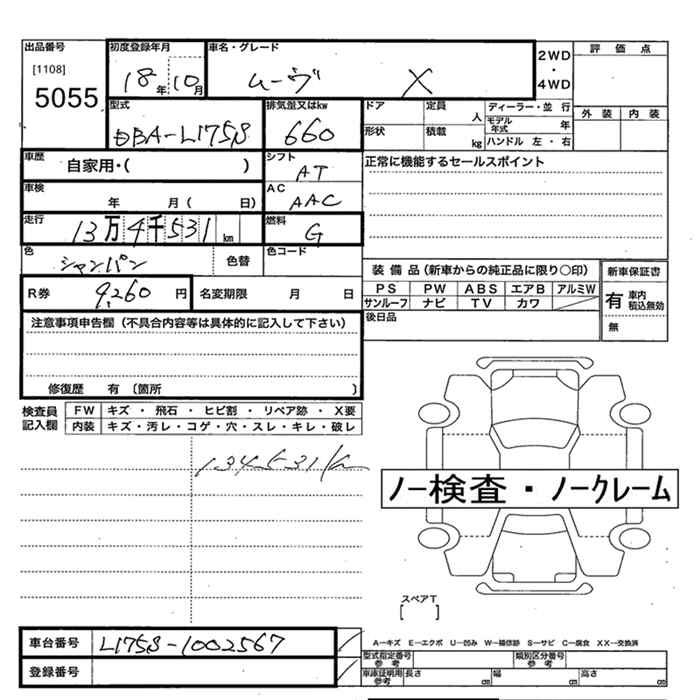 出品番号
[1108]
5055
初度登録年月
18年10月
車名・グレード
ムーヴ X
2WD
・
4WD
評価点
外装 内装
型式
DBA-L175S
排気量又はkw
660
ドア
定員 人
形状
積載 kg
ディーラー・並行
モデル年式 年
ハンドル 左・右
車歴
自家用・( )
シフト
AT
正常に機能するセールスポイント
車検
年 月( 日)
AC
AAC
走行
13万4千531km
燃料
G
色
シャンパン
色替
色コード
R券 9,260円
名変期限 月 日
装備品(新車からの純正品に限り○印)
PS PW ABS エアB アルミW
サンルーフ ナビ TV カワ
後日品
新車保証書
有 車内積込無効
無
注意事項申告欄(不具合内容等は具体的に記入して下さい)
修復歴 有 〔箇所 〕
検査員記入欄
FW キズ・飛石・ヒビ割・リペア跡・X要
内装 キズ・汚レ・コゲ・穴・スレ・キレ・破レ
134531km
ノー検査・ノークレーム
スペアT
[ ]
車台番号 L175S-1002567
登録番号
A-キズ E-エクボ U-凹み W-補修跡 S-サビ C-腐食 XX-交換済
型式指定番号 参考
類別区分番号 参考
車庫証明用 参考
長さ cm
幅 cm
高さ cm